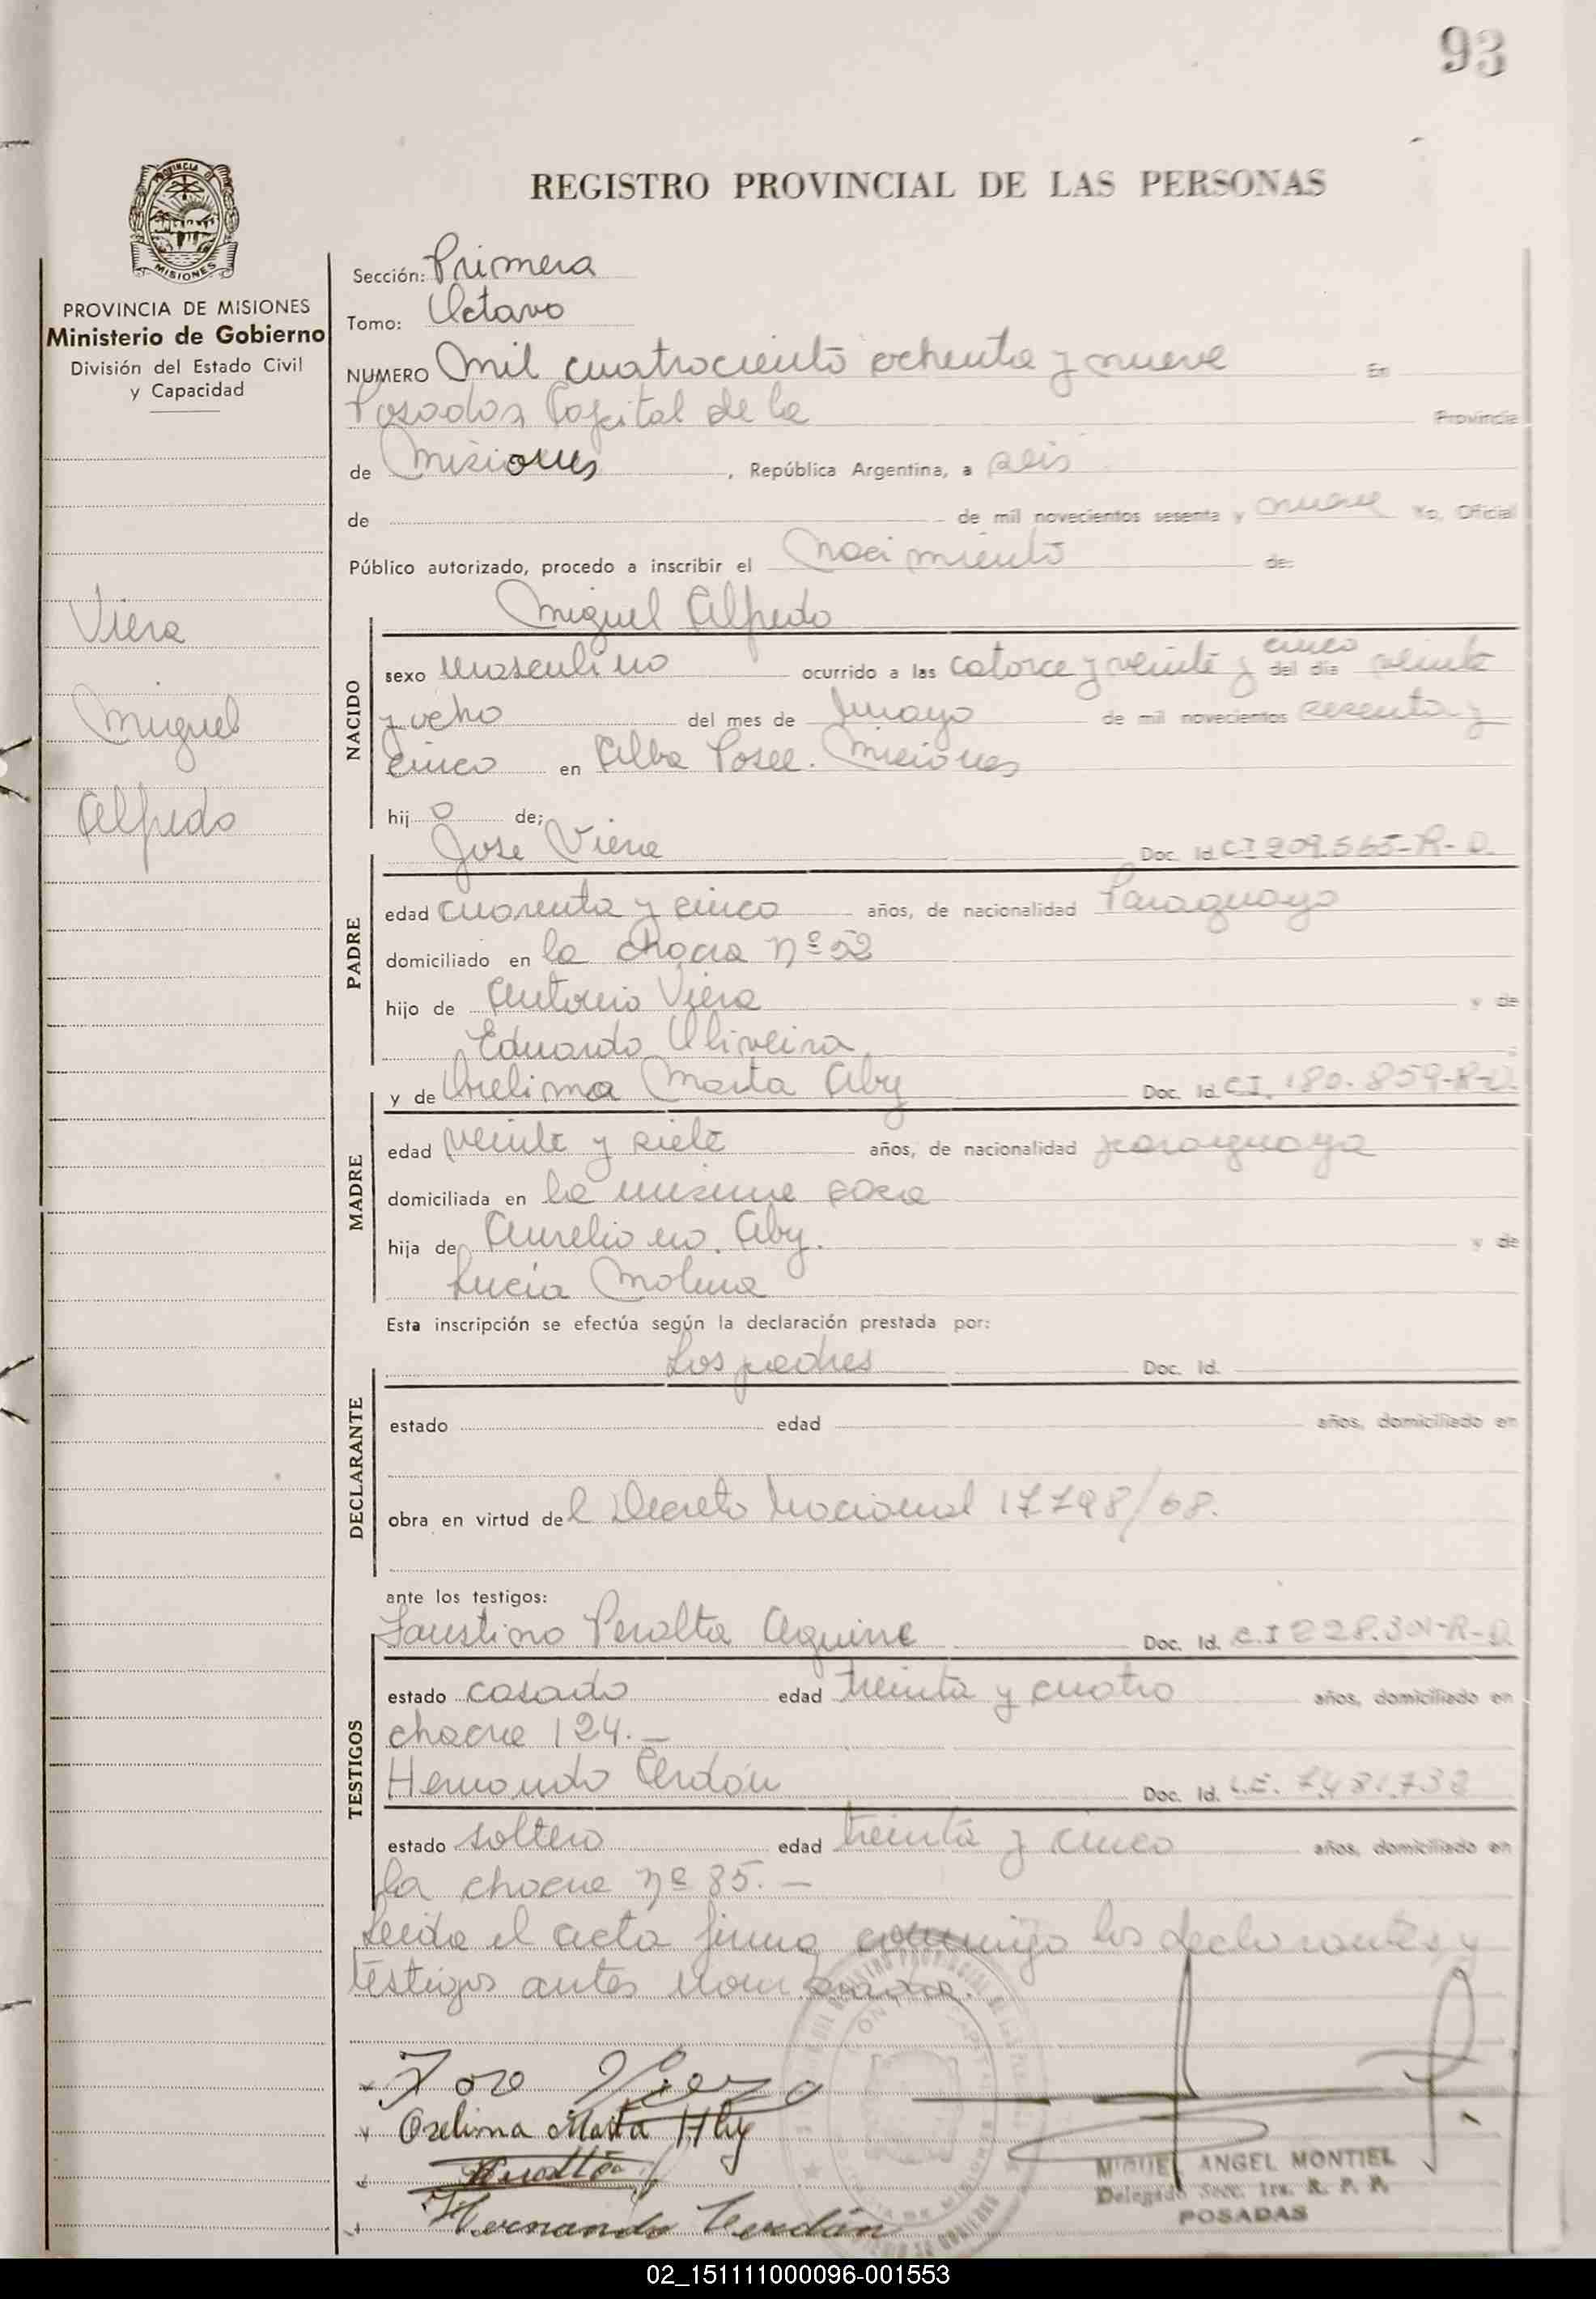 93
REGISTRO PROVINCIAL DE LAS PERSONAS
PROVINCIA DE MISIONES
Ministerio de Gobierno
División del Estado Civil
y Capacidad
Viera
Miguel
Alfredo
Sección: Primera
Tomo: Octavo
NUMERO Mil cuatrociento ochenta y nueve En
Posadas Capital de la Provincia
de Misiones, República Argentina, a seis
de de mil novecientos sesenta y nueve Yo, Oficial
Público autorizado, procedo a inscribir el Nacimiento de:
Miguel Alfredo
NACIDO
sexo masculino ocurrido a las catorce y veinte y cinco del día veinte
y ocho del mes de Mayo de mil novecientos sesenta y
cinco en Alba Posse. Misiones
hijo de;
Jose Viera Doc. Id. CI 209.565-R-D.
PADRE
edad cuarenta y cinco años, de nacionalidad Paraguayo
domiciliado en la chacra Nº 52
hijo de Antonio Viera y de
Eduardo Oliveira
y de Orelima Marta Aby Doc. Id. C.I. 180.859-R-D.
MADRE
edad veinte y siete años, de nacionalidad paraguaya
domiciliada en la misma casa
hija de Aureliano Aby. y de
Lucía Molina
Esta inscripción se efectúa según la declaración prestada por:
Los padres Doc. Id.
DECLARANTE
estado edad años, domiciliado en
obra en virtud del Decreto Nacional 17798/68.
ante los testigos:
TESTIGOS
Faustino Peralta Aquine Doc. Id. C.I 228.301-R-D.
estado casado edad treinta y cuatro años, domiciliado en
chacra 124.—
Hernando Cerdán Doc. Id. L.E. 7.481.732
estado soltero edad treinta y cinco años, domiciliado en
la chacra Nº 85.—
Leida el acta firma conmigo los declarantes y
testigos antes
Jose Viera
Orelima Marta Aby
Hernando Cerdán
MIGUEL ANGEL MONTIEL
Delegado Secc. 1ra. R. P. P.
POSADAS
02_151111000096-001553